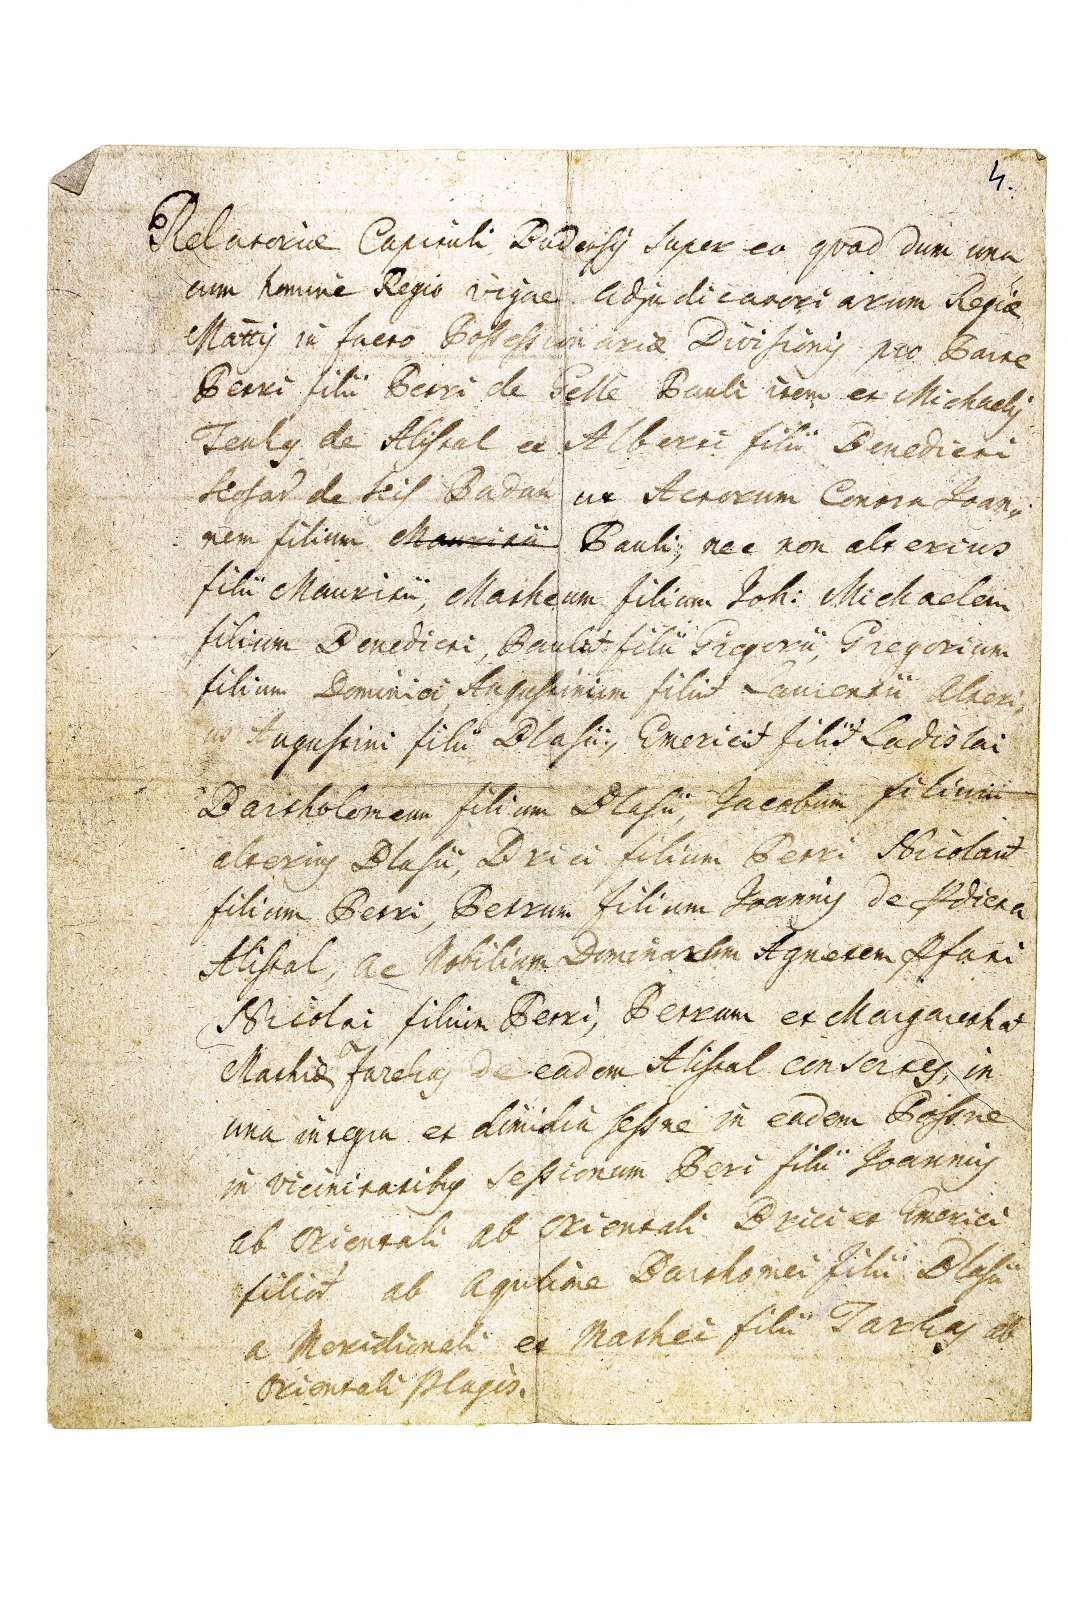 4.
Relatoriae Capituli Budensis super eo quod dum una
cum homine Regio vigore adjudicatoriarum Regiae
Mattis in facto Possessionariae Divisionis pro Parte
Petri filii Petri de Pelle Pauli item et Michaelis
Tenky de Alistal et Alberti filii Benedicti
de Budan ut Actorum Contra Joan-
nem filium Mauritii Pauli, nec non alterius
filii Mauritii, Matheum filium Joh: Michaelem
filium Benedicti, Paulūt filii Gregorii, Gregorium
filium Dominici, Augustinum filiūt Laurentii Alteri,
us Augustini filii Blasii, Emericūt filiūt Ladislai
Bartholomeum filium Blasii, Jacobum filium
alterius Blasii, Bricci filium Petri Nicolaūt
filium Petri, Petrum filium Joannis de
Alistal, ac Nobilium Dominarum Agnetem
Nicolai filium Petri, Petrum et Margaretham
Mathiae de eadem Alistal consortes, in
una integra et dimidia sessne in eadem Possne
in vicinitatibus sessionum Petri filii Joannis
ab orientali ab orientali Bricci et Emerici
filiōt ab Aquilone Barthomei filii Blasii
a Meridionali et Mathei filii ab
orientali Plagis.